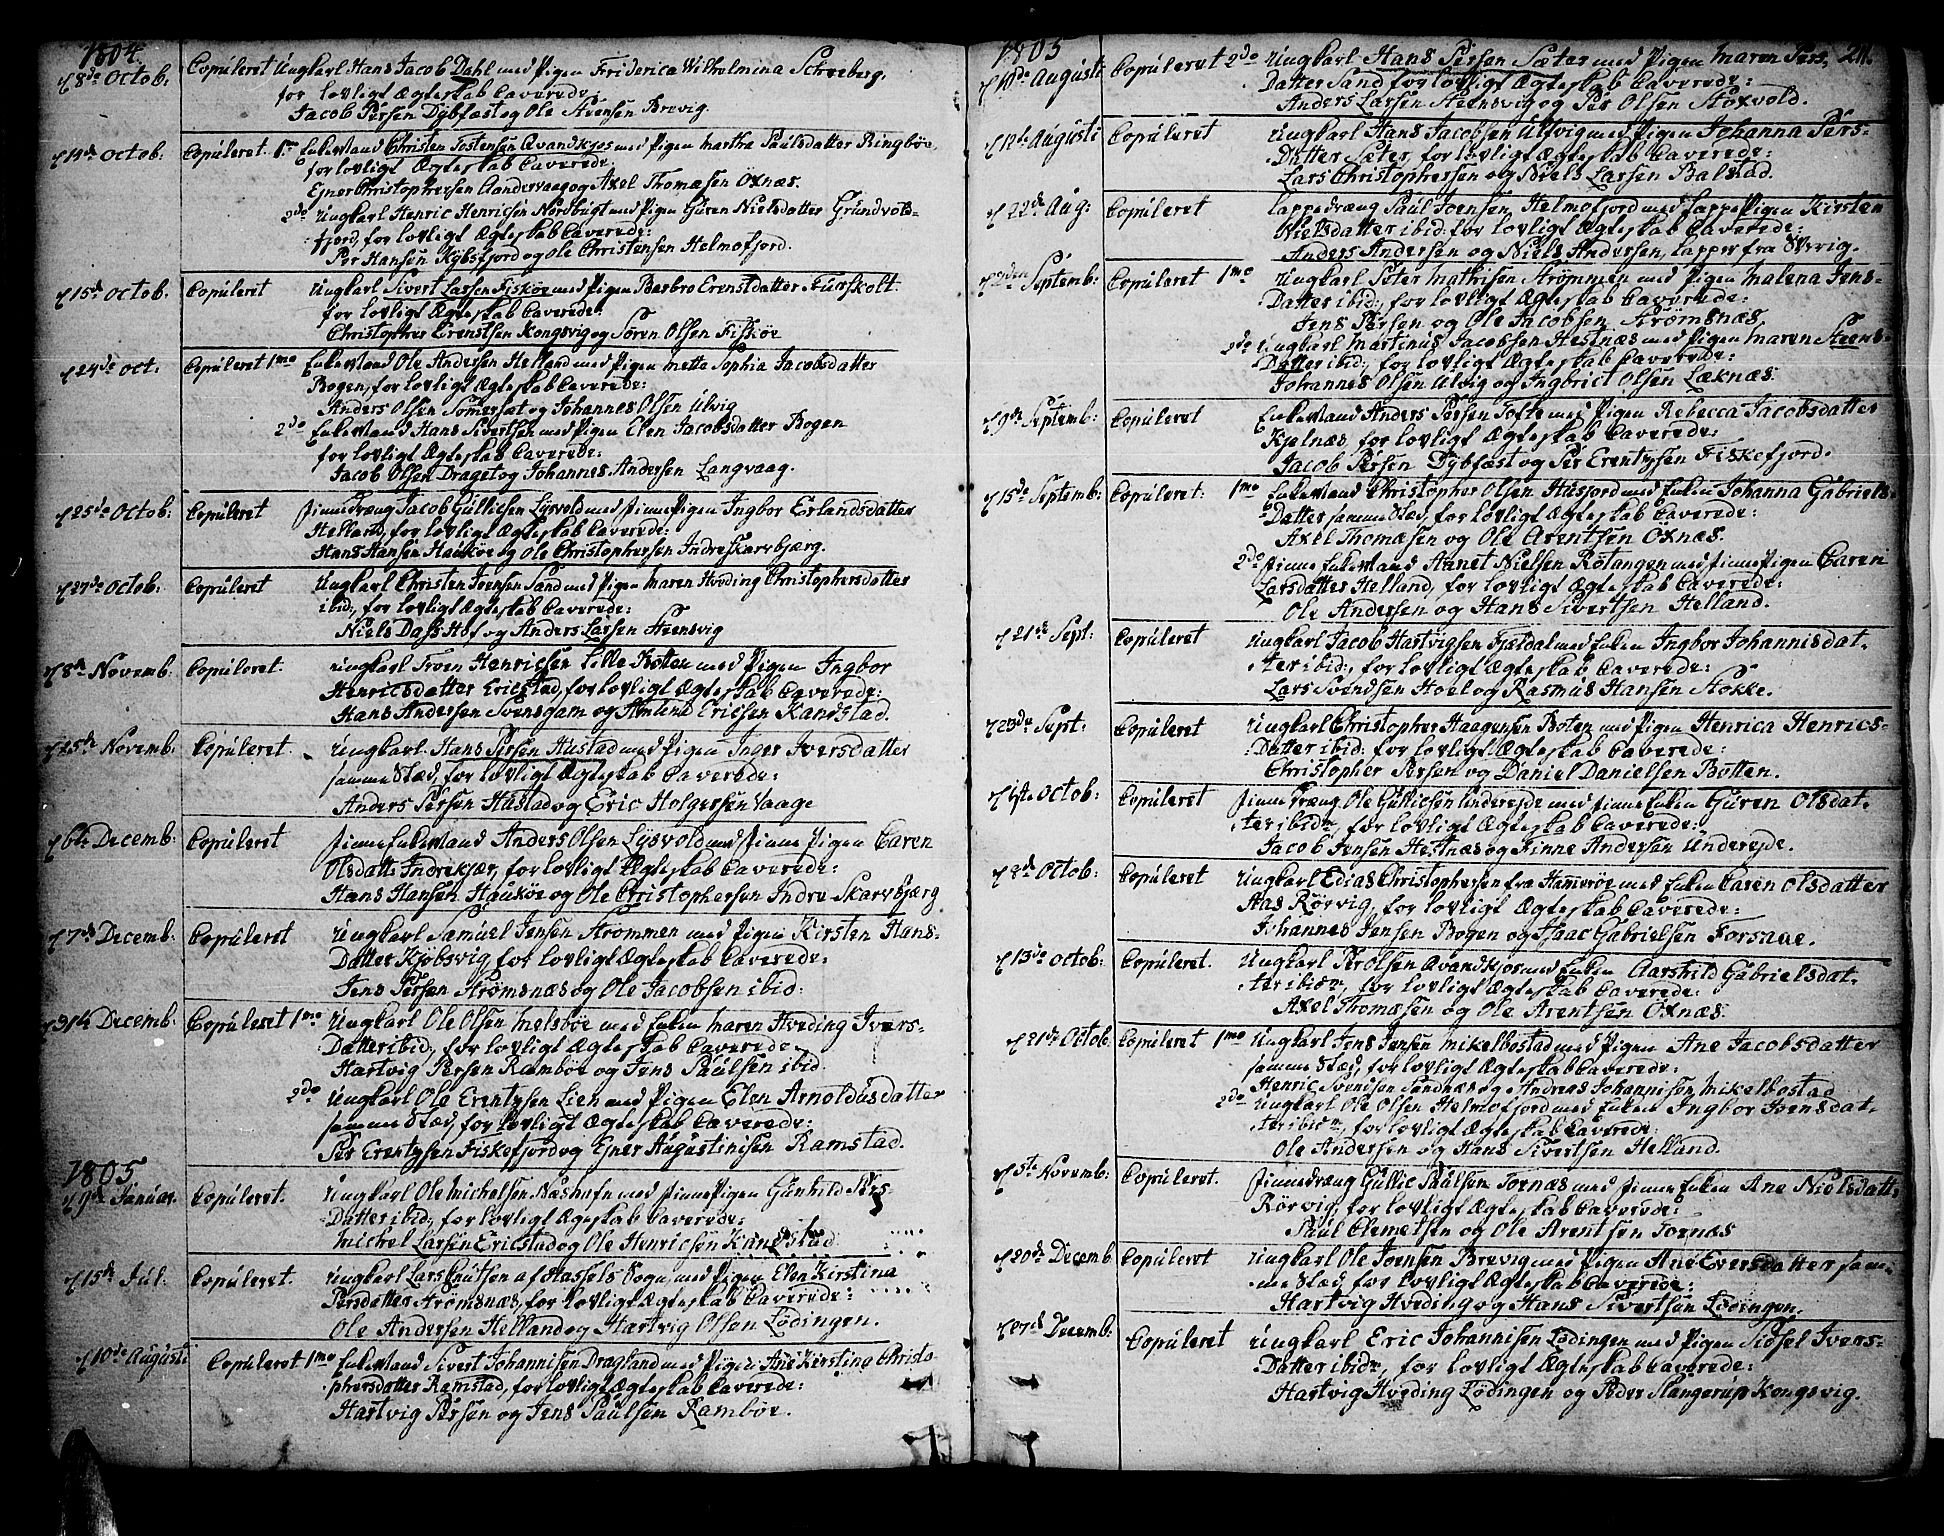 1804.
d 8de Octob: Copúleret Ungkarl Hans Jacob Dahl med Pigen Friderica Wilhelmina Schreberg,
for lovligt Ægteskab Caverede:
Jacob Persen Dybfæst og Ole Steensen Brevig
d 14de Octob: Copúleret. 1mo Enkemand Christen Tostensen Qvandkjos med Pigen Martha Paúlsdatter Ringböe,
for lovligt Ægteskab Caverede:
Ejner Christophersen Sandervaag og Axel Thomæsen Oxnæs.
2do Ungkarl Henric Henricsen Nordbúgt med Pigen Gúren Nielsdatter Gründvots-
fjord, for lovligt Ægteskab Caverede:
Per Hansen Kjöbsfjord og Ole Christensen Helmofjord.
d 15de Octob. Copúleret Ungkarl Sivert Larsen Fiskøe med Pigen Barbro Erenstdatter Fúrskolt.
for lovligt Ægteskab Caverede:
Christopher Erenstsen Kongsvig og Sören Olsen Fiskøe
d 24de Oct. Copúleret 1mo Enkemand Ole Andersen Helland med Pigen Metta Sophia Jacobsdatter
Bogen, for lovligt Ægteskab Caverede:
Anders Olsen Somersæt og Johannes Olsen Ulvig
2do Enkemand Hans Sivertsen med Pigen Elen Jacobsdatter Bogen
for lovligt Ægteskab Caverede:
Jacob Olsen Draget og Johannes Andersen Langvaag.
d 25de Octob: Copúleret Finnedræng Jacob Gúllicsen Lysvold med Finnepigen Ingbor Erlandsdatter
Helland, for lovligt Ægteskab Caverede:
Hans Hansen Haúkøe og Ole Christophersen Indre Skarvbjærg.
d 27de Octob: Copúleret Ungkarl Christen Joensen Sand med Pigen Maren Hveding Christophersdatter
ibid:, for lovligt Ægteskab Caverede:
Niels Dass Hof og Anders Larsen Steensvig
d 8de Novemb: Copúleret. Ungkarl Troen Henricsen Lille Kotten med Pigen Ingbor
Henricsdatter Ericstad, for lovligt Ægteskab Caverede:
Hans Andersen Svensgam og Amúnd Ericsen Kandstad.
d 25de Novemb: Copúleret. Ungkarl Hans Persen Hústad med Pigen Inger Iversdatter
samme Stæd, for lovligt Ægteskab Caverede:
Anders Persen Hústad og Eric Holgersen Vaage
d 6te Decemb: Copúleret Finne Enkemand Anders Olsen Lysvold med Finne Pigen Caren
Olsdatt: Indrekjær, for lovligt Ægteskab Caverede:
Hans Hansen Haúkøe og Ole Christophersen Indre Skarvbjærg
d 7de Decemb: Copúleret Ungkarl Samúel Jensen Strömmen med Pigen Kirsten Hans-
Datter Kjøbsvig, for lovligt Ægteskab Caverede:
Jens Persen Strømsnæs og Ole Jacobsen ibid:
Decemb: Copúleret 1mo Ungkarl Ole Olsen Melsböe med Enken Maren Hveding Ivers-
Datter ibid:, for lovligt Ægteskab Caverede
Hartvig Persen Ramböe og Jens Paúlsen ibid.
2do Ungkarl Ole Erentzsen Lien med Pigen Elen Arnoldúsdatter
samme Stæd, for lovligt Ægteskab Caverede:
Per Erentzsen Fiskefjord og Ejner Aúgústinisen Ramstad.
1805.
d 9de Janúar. Copúleret. Ungkarl Ole Michelsen Nashúfn med Finne Pigen Gúnhild Pers
Datter ibid:, for lovligt Ægteskab Caverede:
Michel Larsen Ericstad og Ole Henricsen Kandstad
d 15de Júl. Copúleret. Ungkarl Lars Knútsen af Hassels Sogn, med Pigen Elen Kirstina
Persdatter Strømsnæs, for lovligt Ægteskab Caverede:
Ole Andersen Helland og Hartvig Olsen Lødingen.
d 10de Augusti Copúleret 1mo Enkemand Sivert Johannisen Dragland med Pigen Ane Kirstina Christo-
phersdatter Ramstad, for lovligt Ægteskab Caverede:
Hartvig Persen og Jens Paúlsen Rambøe.
1805 211.
d 10de Augusti Copúleret 2do Ungkarl Hans Persen Sæter med Pigen Maren Pers.
Datter Sand for lovligt Ægteskab Caverede:
Anders Larsen Steensvig og Per Olsen Stoxvold.
d 12te Augusti Copúleret Ungkarl Hans Jacobsen Ulvig med Pigen Johanna Pers-
Datter Sæter, for lovligt Ægteskab Caverede:
Lars Christophersen og Niels Larsen Balstad.
d 22de Aug: Copúleret Lappedræng Paúl Joensen Helmofjord med Lappe Pigen Kirsten
Nielsdatter ibid: for lovligt Ægteskab Caverede:
Anders Andersen og Niels Andersen, Lapper fra Sverig.
Septemb: Copúleret 1mo Ungkarl Peter Mathisen Strømmen med Pigen Malena Jens-
Datter ibid:, for lovligt Ægteskab Caverede:
Jens Persen og Ole Jacobsen Strømsnæs
2do Ungkarl Martinús Jacobsen Hestnæs med Pigen Maren Steens-
Datter ibid:, for lovligt Ægteskab Caverede:
Johannes Olsen Ulvig og Ingbrict Olsen Læknæs.
d 9de Septemb: Copúleret Enkemand Anders Persen Tofte med Pigen Rebecca Jacobsdatter
Kjelnæs, for lovligt Ægteskab Caverede:
Jacob Persen Dybfæst og Per Erentzsen Fiskefjord.
d 15de Septemb: Copúleret. 1mo Enkemand Christopher Olsen Húsfjord med Enken Johanna Gabriels-
Datter samme Stæd, for lovligt Ægteskab Caverede:
Axel Thomæsen og Ole Arentsen Oxnæs.
2do Finne Enkemand Aanet Nielsen Rötangen med Finne Pigen Caren
Larsdatter Helland, for lovligt Ægteskab Caverede:
Ole Andersen og Hans Sivertsen Helland.
d 21de Sept: Copúleret Ungkarl Jacob Hartvigsen Fjældal med Enken Ingbor Johannisdat-
ter ibid:, for lovligt Ægteskab Caverede:
Lars Svendsen Hoel og Rasmús Hansen Stokke.
Sept: Copúleret Ungkarl Christopher Haagensen Boten med Pigen Henrica Henrics-
Datter ibid: for lovligt Ægteskab Caverede:
Christopher Persen og Daniel Danielsen Botten.
d 1te Octob: Copúleret Finne Dræng Ole Gúllicsen Underejde med Finne Enken Gúren Olsdat-
ter ibidm, for lovligt Ægteskab Caverede:
Jacob Jensen Hestnæs og Finne Andersen Únderejde.
d 2de Octob: Copúleret Ungkarl Edias Christophersen fra Hammerøe med Enken Caren Olsdatter
Aas Rörvig, for lovligt Ægteskab Caverede:
Johannes Jensen Bogen og Isaac Gabrielsen Forsaae.
d 13de Octob: Copúleret. Ungkarl Per Olsen Qvandkjos med Enken Aarshild Gabrielsdat-
ter ibidm, for lovligt Ægteskab Caverede:
Axel Thomæsen og Ole Arentsen Oxnæs.
d 21de Octob. Copúleret 1mo Ungkarl Jens Jensen Mikelbostad med Pigen Ane Jacobsdatter
samme Stæd, for lovligt Ægteskab Caverede:
Henric Svendsen Sandnæs og Andreas Johannisen Mikelbostad
2do Ungkarl Ole Olsen Helmofjord med Enken Ingbor Iversdat-
ter ibidm, for lovligt Ægteskab Caverede:
Ole Andersen og Hans Sivertsen Helland.
d 5te Novemb: Copúleret. Finnedræng Gúllic Paúlsen Tornæs med Finne Enken Ane Nielsdatt:
Rörvig, for lovligt Ægteskab Caverede:
Paúl Clemetsen og Ole Arentsen Tornæs
d 20de Decemb Copúleret Ungkarl Ole Joensen Brevig med Pigen Ane Eversdatter sam-
me Stæd, for lovligt Ægteskab Caverede:
Hartvig Hveding og Hans Sivertsen Lødingen.
Decemb: Copúleret Ungkarl Eric Johannisen Lødingen med Pigen Sidsel Ivers-
Datter ibidm, for lovligt Ægteskab Caverede:
Hartvig Hveding Lødingen og Peder Slangerúp Kongsvig.